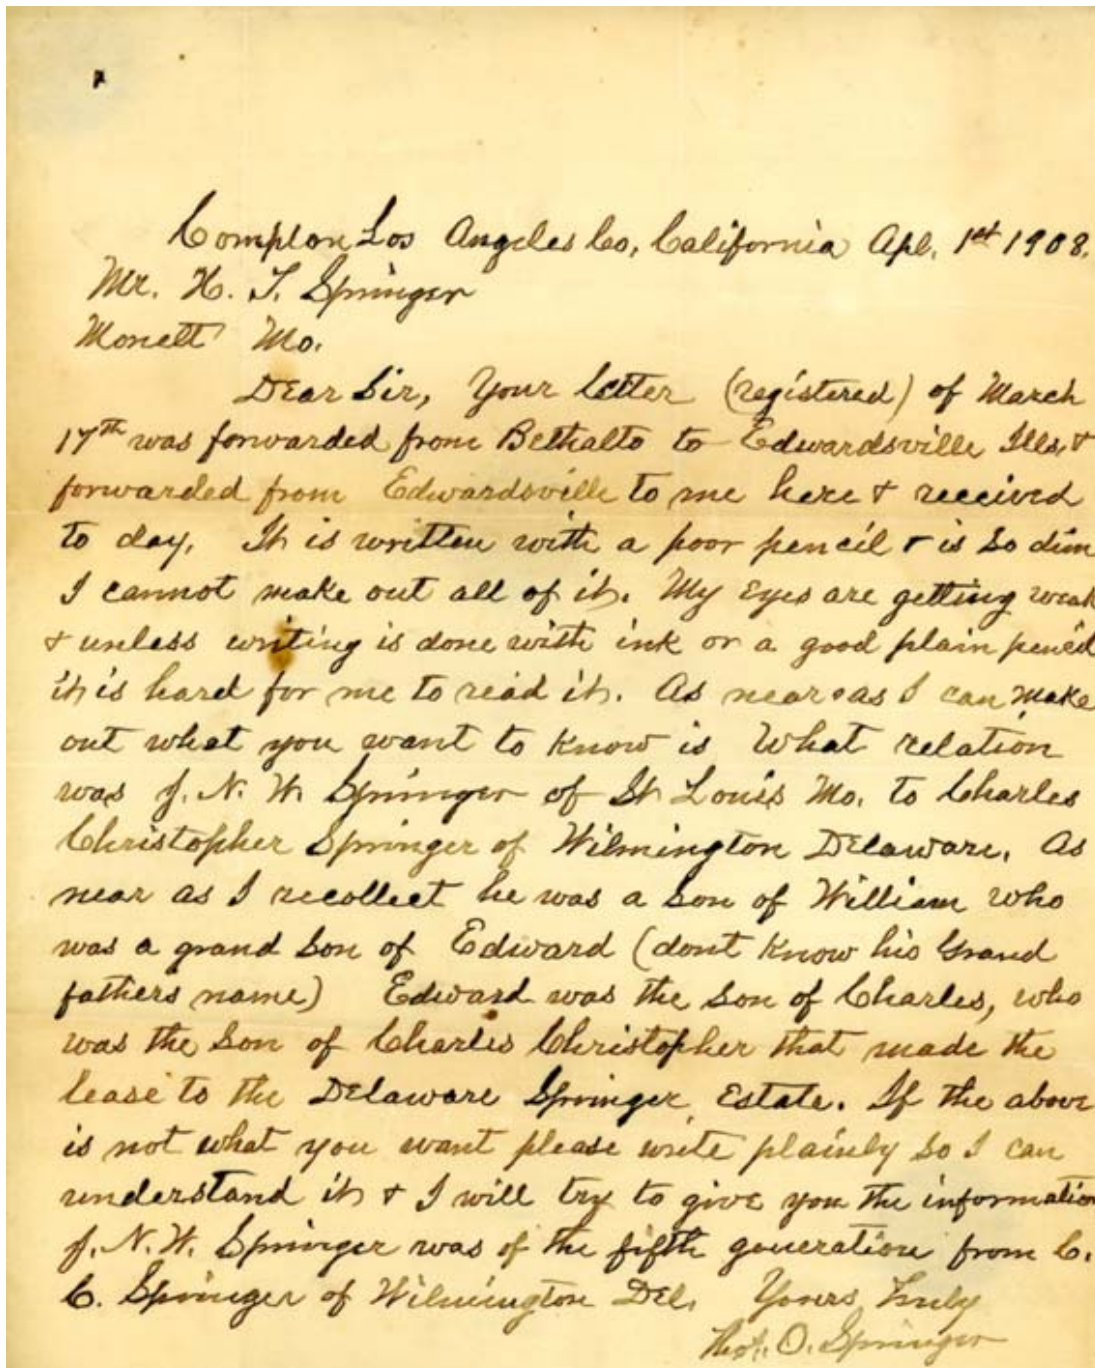 Compton Los Angeles Co, California Apl. 1st 1908.
Mr. H. T. Springer
Monett Mo.
Dear Sir, Your letter (registered) of March
17th was forwarded from Bethalto to Edwardsville Ills. &
forwarded from Edwardsville to me here & received
to day. It is written with a poor pencil & is so dim
I cannot make out all of it. My Eyes are getting weak
& unless writing is done with ink or a good plain pencil
it is hard for me to read it. As near as I can make
out what you want to know is What relation
was J. N. W. Springer of St Louis Mo. to Charles
Christopher Springer of Wilmington Delaware. As
near as I recollect he was a Son of William who
was a grand Son of Edward (dont Know his Grand
fathers name) Edward was the Son of Charles, who
was the Son of Charles Christopher that made the
lease to the Delaware Springer Estate. If the above
is not what you want please write plainly so I can
understand it & I will try to give you the information
J. N. W. Springer was of the fifth generation from C.
C. Springer of Wilmington Del. Yours Truly
O. Springer